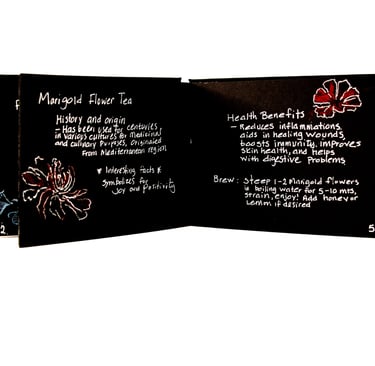 Marigold Flower Tea
History and origin
- Has been used for centuries
in various cultures for Medicinal
and culinary Purposes, originated
From Mediterranean region
* Interesting facts *
Symbolizes for
Joy and Positivity
2
Health Benefits
- Reduces inflammations,
aids in healing wounds,
boosts immunity, improves
skin health, and helps
with digestive Problems
Brew: Steep 1-2 Marigold flowers
in boiling water for 5-10 mts,
strain, enjoy! Add honey or
Lemon if desired
5